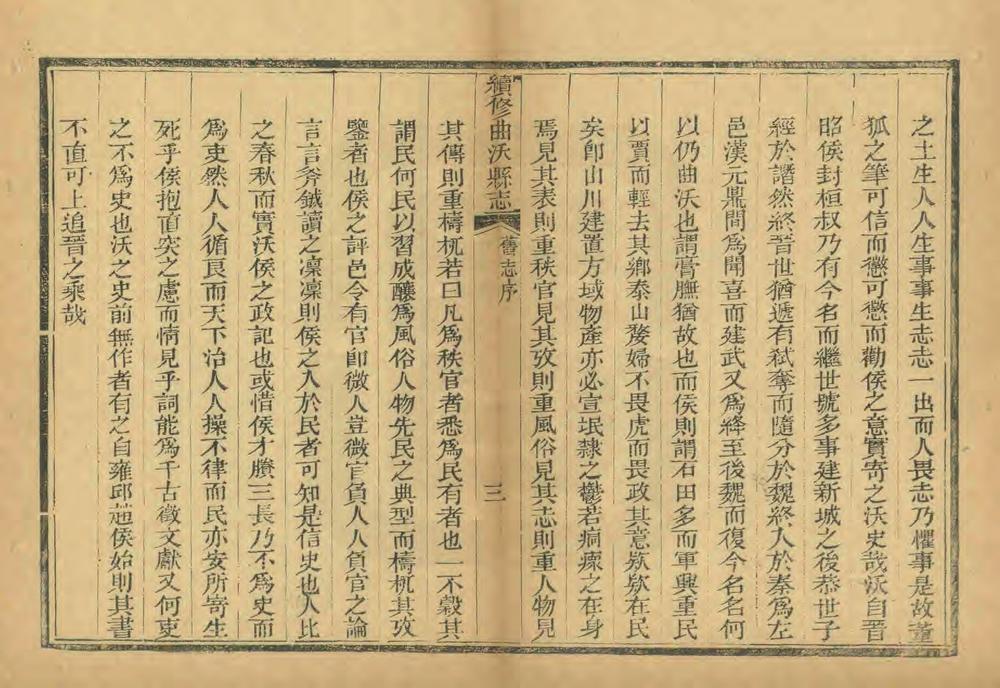 之土生人人生事事生志志一出而人畏志乃懼事是故董
狐之筆可信而懲可懲而勸侯之意實寄之沃史哉沃自晉
昭侯封桓叔乃有今名而繼世號多事建新城之後恭世子
經於譖然終晉世猶遞有弒奪而隨分於魏終入於秦爲左
邑漢元鼎間爲聞喜而建武又爲絳至後魏而復今名名何
以仍曲沃也謂膏腴猶故也而侯則謂石田多而軍興重民
以賈而輕去其鄉泰山婺婦不畏虎而畏政其意欵欵在民
矣卽山川建置方域物產亦必宣氓隸之鬱若痌瘝之在身
焉見其表則重秩官見其攷則重風俗見其志則重人物見
續修曲沃縣志
舊志序
三
其傳則重檮杌若曰凡爲秩官者悉爲民有者也一不穀其
謂民何民以習成釀爲風俗人物先民之典型而檮杌其攷
鑒者也侯之評邑令有官卽微人豈微官負人人負官之論
言言斧鉞讀之凜凜則侯之入於民者可知是信史也人比
之春秋而實沃侯之政記也或惜侯才賸三長乃不爲史而
爲吏然人人循良而天下治人人操不律而民亦安所寄生
死乎侯抱直突之慮而情見乎詞能爲千古徵文獻又何吏
之不爲史也沃之史前無作者有之自雍邱趙侯始則其書
不直可上追晉之乘哉